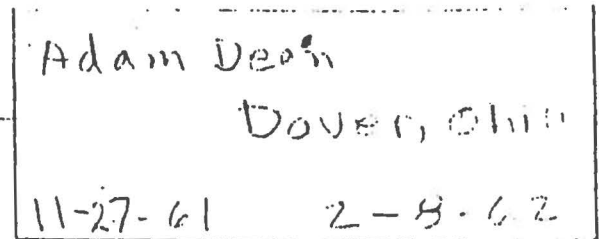 Adam Dean
Dover, Ohio
11-27-61 2-8-62